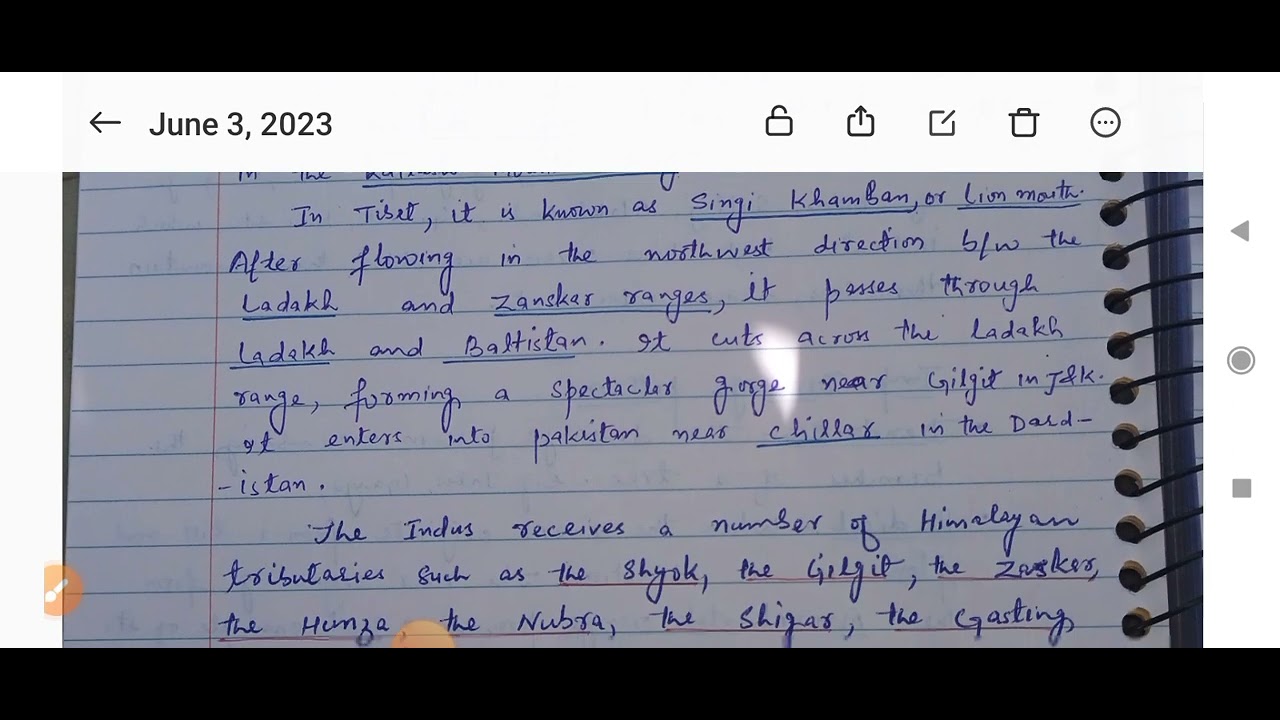 June 3, 2023
in the
In Tibet, it is known as Singi Khamban, or Lion mouth.
After flowing in the northwest direction b/w the
Ladakh and Zanskar ranges, it passes through
Ladakh and Baltistan. It cuts across the Ladakh
range, forming a spectaclar gorge near Gilgit in J&K.
It enters into pakistan near chillar in the Dard-
-istan.
The Indus receives a number of Himalayan
tributaries such as the Shyok, the Gilgit, the Zasker,
the Hunza the Nubra, the Shigar, the Gasting,